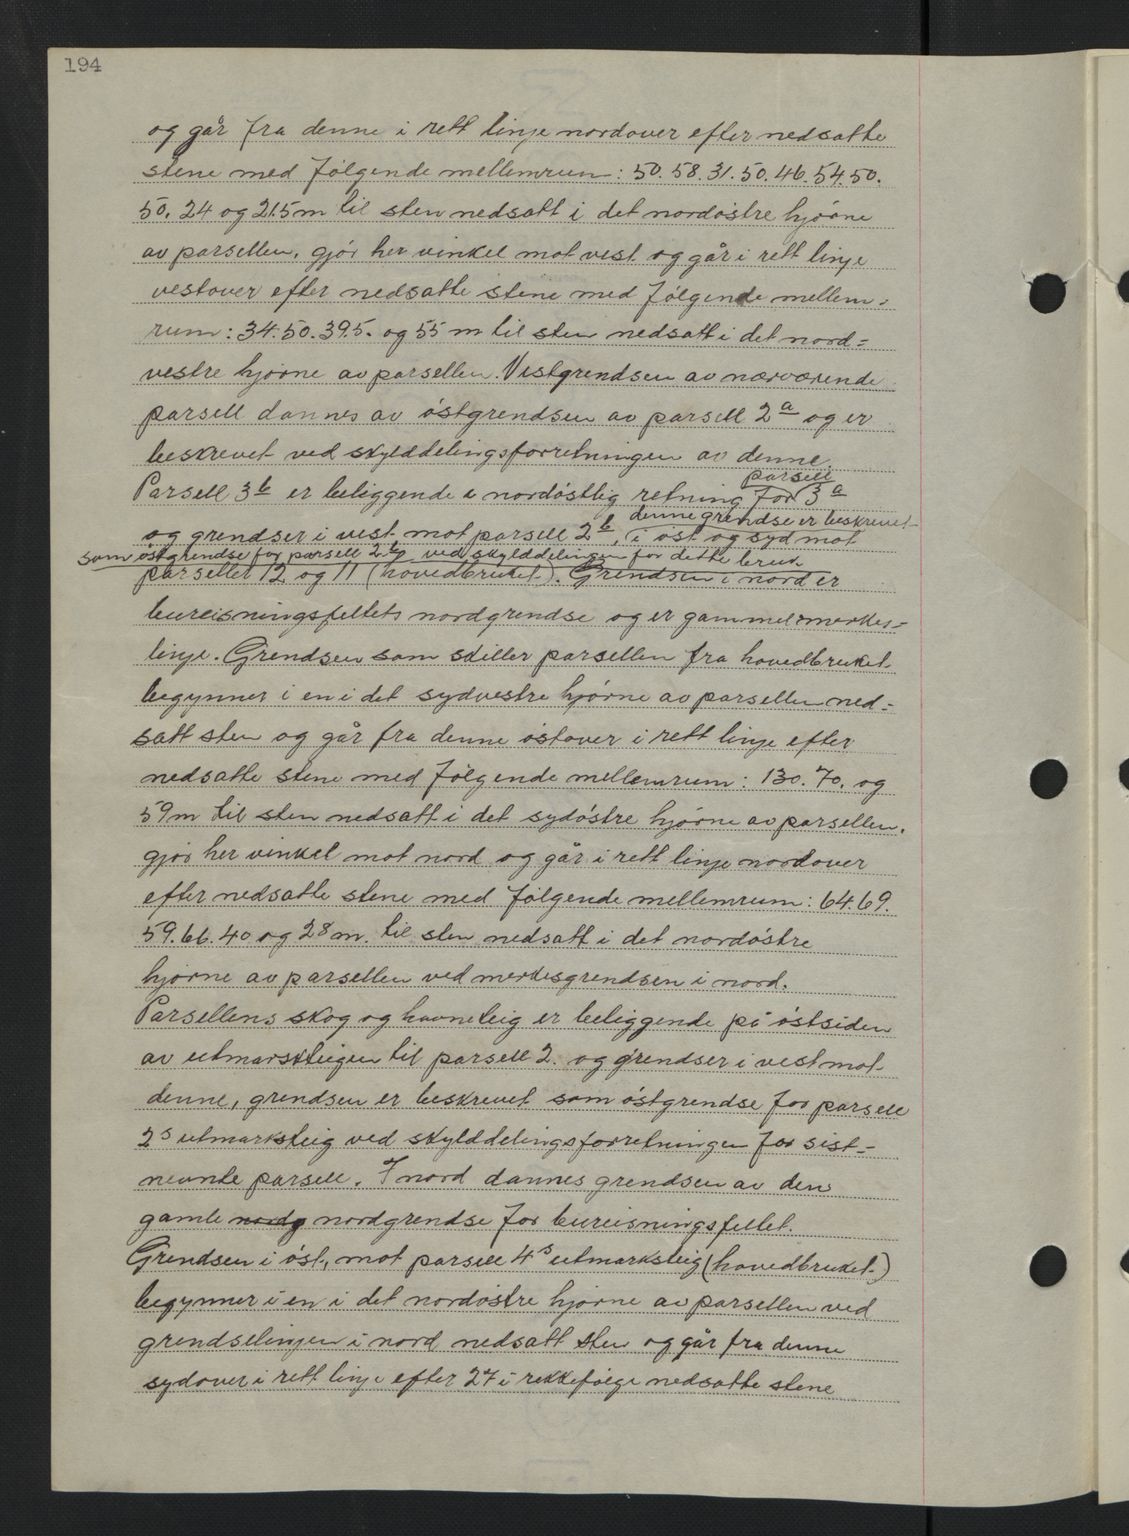 194
og går fra denne i rett linje nordover efter nedsatte
stene med følgende mellemrum: 50. 58. 31. 50. 46. 54. 50.
50. 24 og 21.5 m til sten nedsatt i det nordöstre hjörne
av parsellen, gjör her vinkel mot vest og går i rett linje
vestover efter nedsatte stene med følgende mellem=
rum: 34. 50. 39.5. og 55 m til sten nedsatt i det nord=
vestre hjörne av parsellen. Vestgrendsen av nærværende
parsell dannes av östgrendsen av parsell 2a og er
beskrevet ved skylddelingsforretningen av denne.
parsell
Parsell 3b er beliggende i nordöstlig retning for 3a
denne grendse er beskrevet
og grendser i vest mot parsell 2b, i öst og syd mot
som östgrendse for parsell 2b ved skylddelingen for dette bruk
parseller 12 og 11 (hovedbruket). Grendsen i nord er
bureisningsfeltets nordgrendse og er gammel merkes=
linje. Grendsen som skiller parsellen fra hovedbruket
begynner i en i det sydvestre hjörne av parsellen ned=
satt sten og går fra denne östover i rett linje efter
nedsatte stene med følgende mellemrum: 130. 70. og
59 m til sten nedsatt i det sydöstre hjörne av parsellen,
gjör her vinkel mot nord og går i rett linje nordover
efter nedsatte stene med følgende mellemrum: 64. 69.
59. 66. 40 og 28 m. til sten nedsatt i det nordöstre
hjörne av parsellen ved merkesgrendsen i nord.
Parsellens skog og havneteig er beliggende på östsiden
av utmarsteigen til parsell 2. og grendser i vest mot
denne, grendsen er beskrevet som östgrendse for parsell
2s utmarksteig ved skylddelingsforretningen for sist=
nevnte parsell. I nord dannes grendsen av den
gamle nordg nordgrendse for bureisningsfeltet.
Grendsen i öst, mot parsell 4s utmarksteig (hovedbruket)
begynner i en i det nordöstre hjörne av parsellen ved
grendselinjen i nord nedsatt sten og går fra denne
sydover i rett linje efter 27 i rekkefölge nedsatte stene